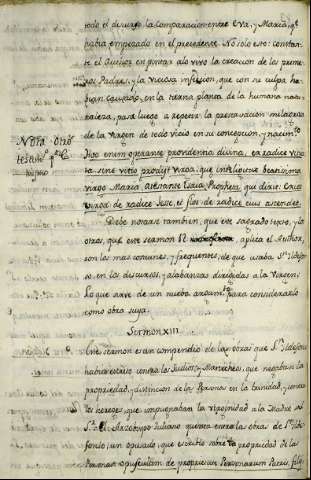 todo el discurso la comparacion entre Eva, y Maria, qᵉ
habia empezado en el precedente. No solo esto: constan-
te el Author en pintar alo vivo la creacion de los prime-
ros Padres, y la viciosa infeccion, que con su culpa ha-
bian causado, en la tierna planta de la humana natu-
raleza, para luego a repetir la preservacion milagrosa
de la Virgen de todo vicio en su concepcion, y nacimᵗᵒ
Nota otro
testimᵒ
Dico enim operante providentia divina, ex radice vitia
ta sine vitio prodijt virga, que intelligitur beatissima
virgo Maria, attestante Esaia Propheta, qui dixit: Exiet
virga de radice Jesse, et flos de radice eius ascendet.
Debe notarse tambien, que este sagrado texto, y los
otros, que este sermon aplica el Author,
son los mas comunes, y frequentes, de que usaba Sⁿ Ildefon
so en los discursos, y alabanzas dirigidas a la Virgen;
Lo que sirve de un nuebo argumᵗᵒ para considerarlo
como obra suya.
Sermon XIII
Este sermon es un compendio de las obras que Sⁿ Ildefonso
habia escrito contra los Judios, y Manicheos, que negaban la
propriedad, distincion de las Personas en la trinidad, y contra
los hereges, que impugnaban la virginidad a la Madre de
El Arzobispo Juliano quenta entre las obras de Sⁿ Ilde
fonso, un opusculo, que escribio sobre la propriedad de las
Personas: opusculum de proprietate Personarum Patris, filij